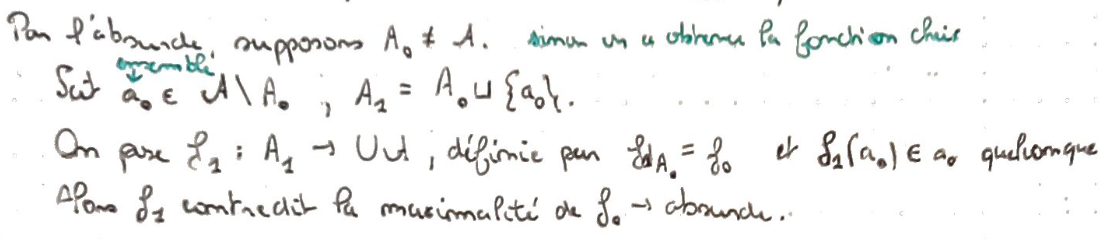 Par l'absurde, supposons A₀ ≠ A. sinon on a obtenu la fonction choix
ensemble
Soit a₀ ∈ A \ A₀ , A₁ = A₀ ⊔ {a₀}.
On pose f₁ : A₁ → ∪A , définie par f₁|A₀ = f₀ et f₁(a₀) ∈ a₀ quelconque
Alors f₁ contredit la maximalité de f₀ → absurde.